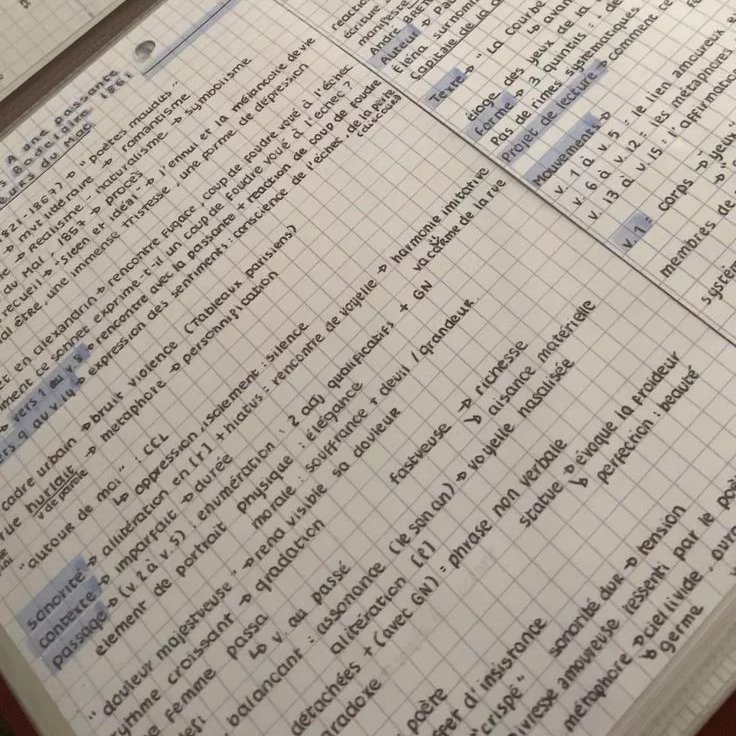 A une passante
Baudelaire 1861
Mal
821-1867) → "poètes maudits"
→ mvt littéraire → romantisme
→ Réalisme - naturalisme → symbolisme
du Mal, 1857 → procès
recueil → "Spleen et idéal" → l'ennui et la mélancolie de vie
al être, une immense tristesse, une forme de dépression
en alexandrin → rencontre fugace, coup de foudre voué à l'échec
ment ce sonnet exprime-t-il un coup de foudre voué à l'échec?
vers 1 au v.8 → rencontre avec la passante + réaction de coup de foudre
ers 9 au v.14 → expression des sentiments : conscience de l'échec, de la perte
(discours)
cadre urbain → bruit violence (Tableaux parisiens)
rue hurlait → métaphore → personnification
v de parole
"autour de moi" : CCL
↳ oppression, isolement : silence
sonorité → allitération en [r] + hiatus : rencontre de voyelle → harmonie imitative
vacarme de la rue
contexte → imparfait → durée
passage → (v.2 à v.5) : énumération : 2 adj qualificatifs + GN
élément de portrait physique : élégance
morale : souffrance + deuil / grandeur
"douleur majestueuse" → rend visible sa douleur
rythme croissant → gradation
fastueuse → richesse
↳ aisance matérielle
femme passa
↳ v au passé
balançant : assonance (le son an) → voyelle nasalisée
alitération [l]
détachées + (avec GN) : phrase non verbale
statue → évoque la froideur
↳ perfection : beauté
aradoxe
poète
effet d'insistance
"crispé" sonorité dur → tension
ivresse amoureuse ressenti par le poè
métaphore → "ciel livide, oura
↳ germe
réactio
écriture
manifeste
André Bre
Auteur → Pau
Elena surnomm
Capitale de la d
Texte → "La courbe
↳ avan
éloge des yeux de la
Forme → 3 quintils : de
Pas de rimes systématiques
Projet de lecture → comment ce
Mouvements →
v.1 à v.5 : le lien amoureux
v.6 à v.12 : les métaphores
v.13 à v.15 : l'affirmation
v.1 : corps → "yeux"
membres de
systè